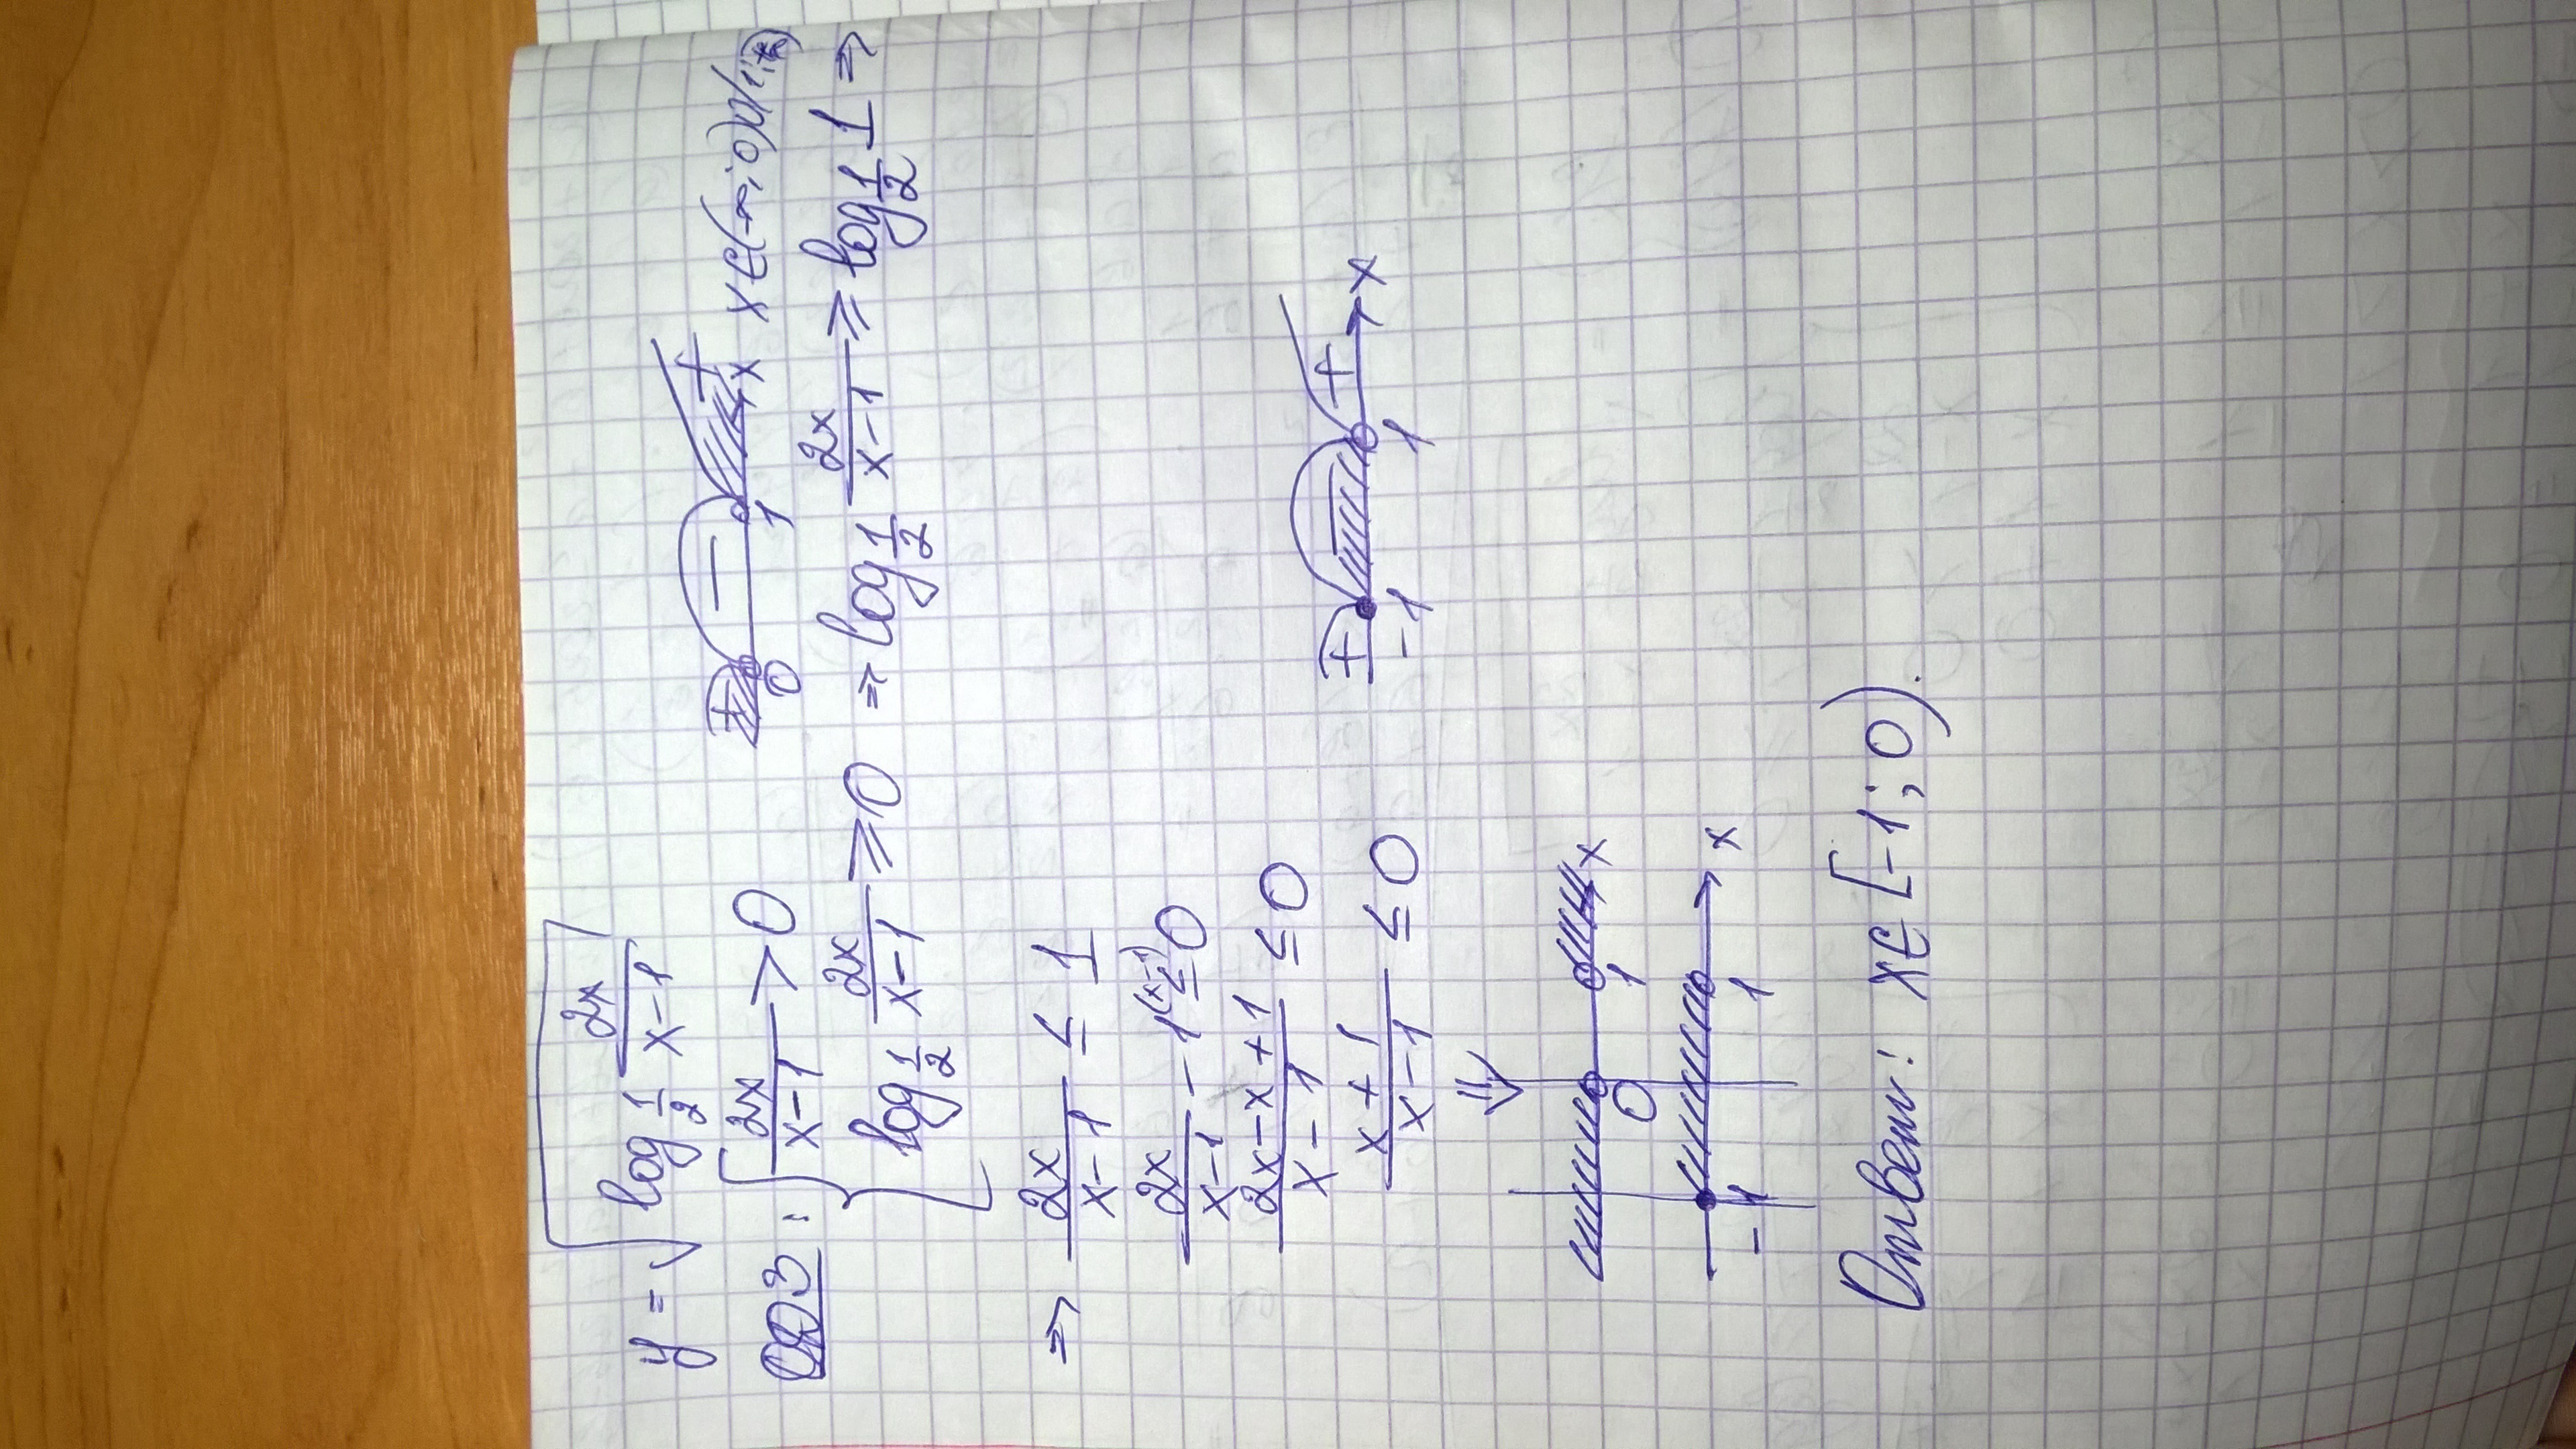 y = √(log 1/2 2x/(x-1))
ОДЗ: { 2x/(x-1) > 0 + 0 - 1 + x x∈(-∞;0)∪(1;+∞)
log 1/2 2x/(x-1) ≥ 0 ⇒ log 1/2 2x/(x-1) ≥ log 1/2 1 ⇒
⇒ 2x/(x-1) ≤ 1
2x/(x-1) - 1^(x-1) ≤ 0
(2x-x+1)/(x-1) ≤ 0
(x+1)/(x-1) ≤ 0 + -1 - 1 + x
⇓
0 1 x
-1 1 x
Ответ: x∈[-1;0).